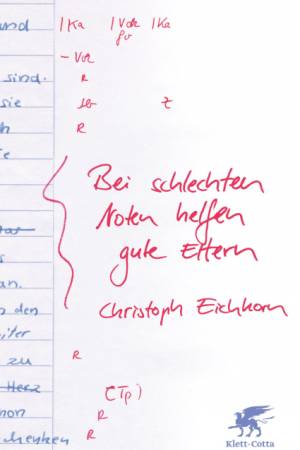 und | Ka | Vok | Ka
go
- Vok
sind. R
sie sb z
h R
Bei schlechten
Noten helfen
gute Eltern
an.
Christoph Eichhorn
n den
iter
zu R
Herz (Tp)
hon R
chenken R
Klett-Cotta